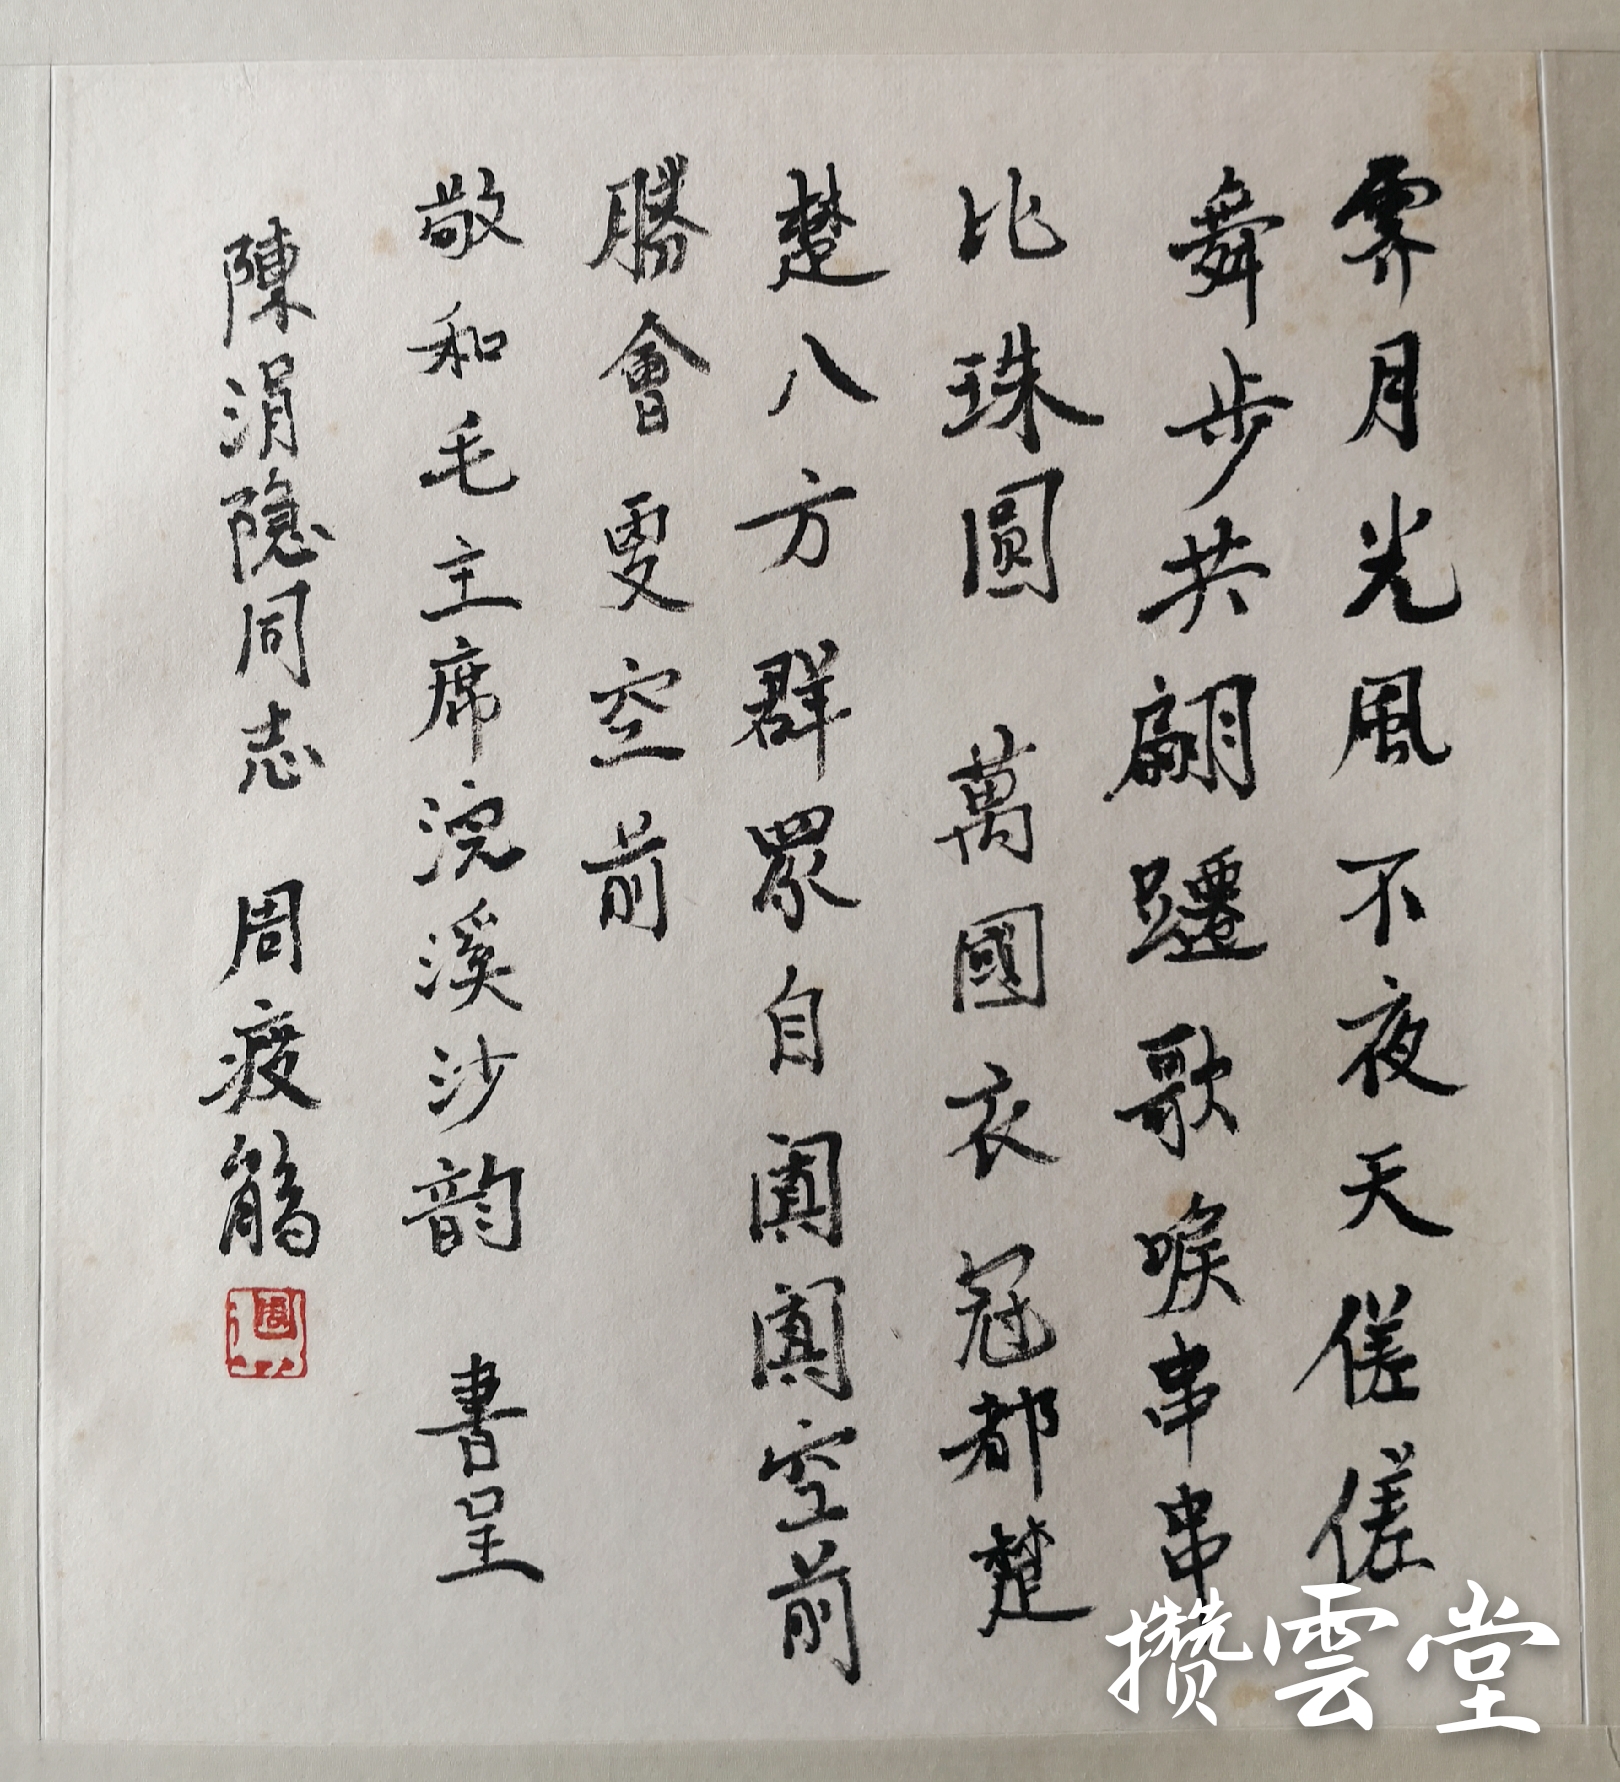 霽月光風不夜天傞傞
舞步共翩躚歌喉串串
比珠圓 萬國衣冠都楚
楚八方群眾自闐闐空前
勝會更空前
敬和毛主席浣溪沙韵 書呈
陳涓隐同志 周瘦鵑
周
攒雲堂